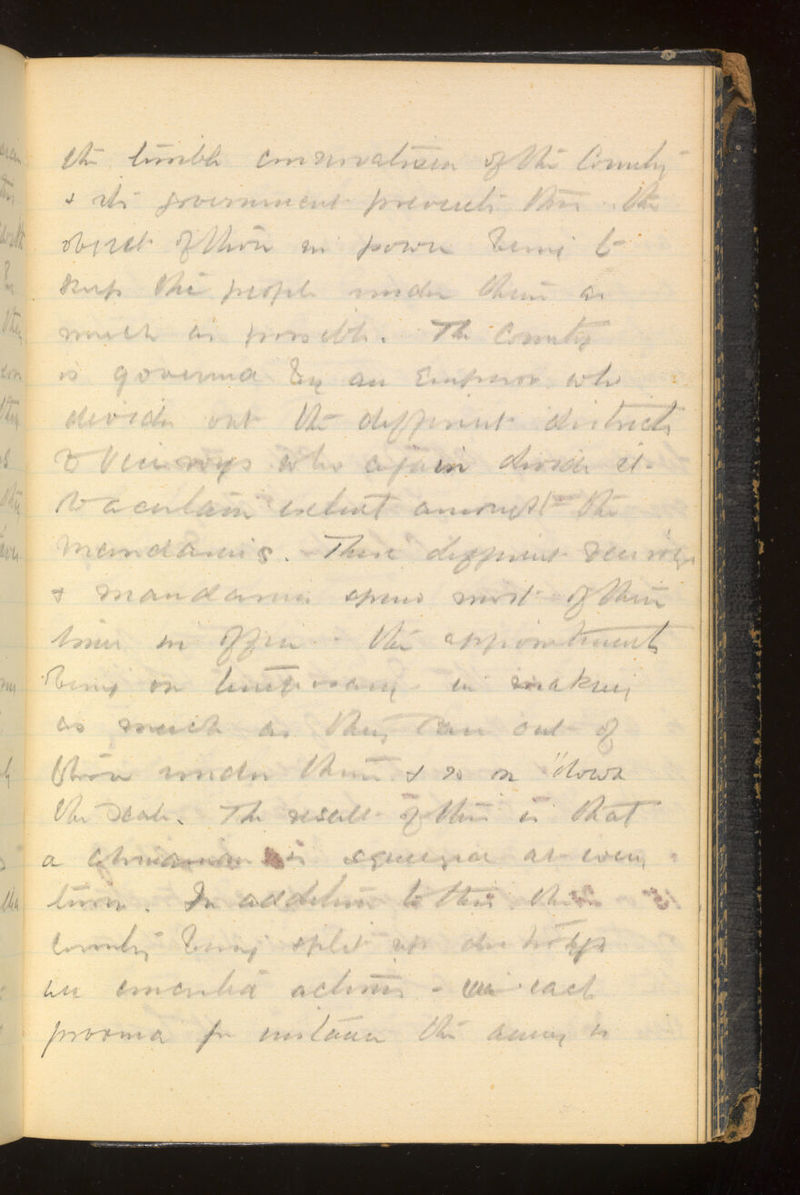 the terrible conservatism of the Country
& its government prevents this the
object of those in power being to
keep the people under them as
much as possible. The Country
is governed by an Emperor who
divides out the different districts
to Viceroys who again divide it
to a certain extent amongst the
mandarins. These different viceroys
& mandarins spend most of their
time in office the appointments
being on temporary in making
as much as they can out of
those under them & so on down
the scale. The result of this is that
a Chinaman is squeezed at every
turn. In addition to this the
Country being split up
all concerted action - in each
province for instance the army is